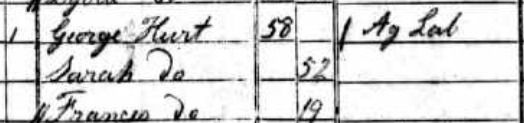 1 George Hurt 58 Ag Lab
Sarah Do 52
Frances Do 19